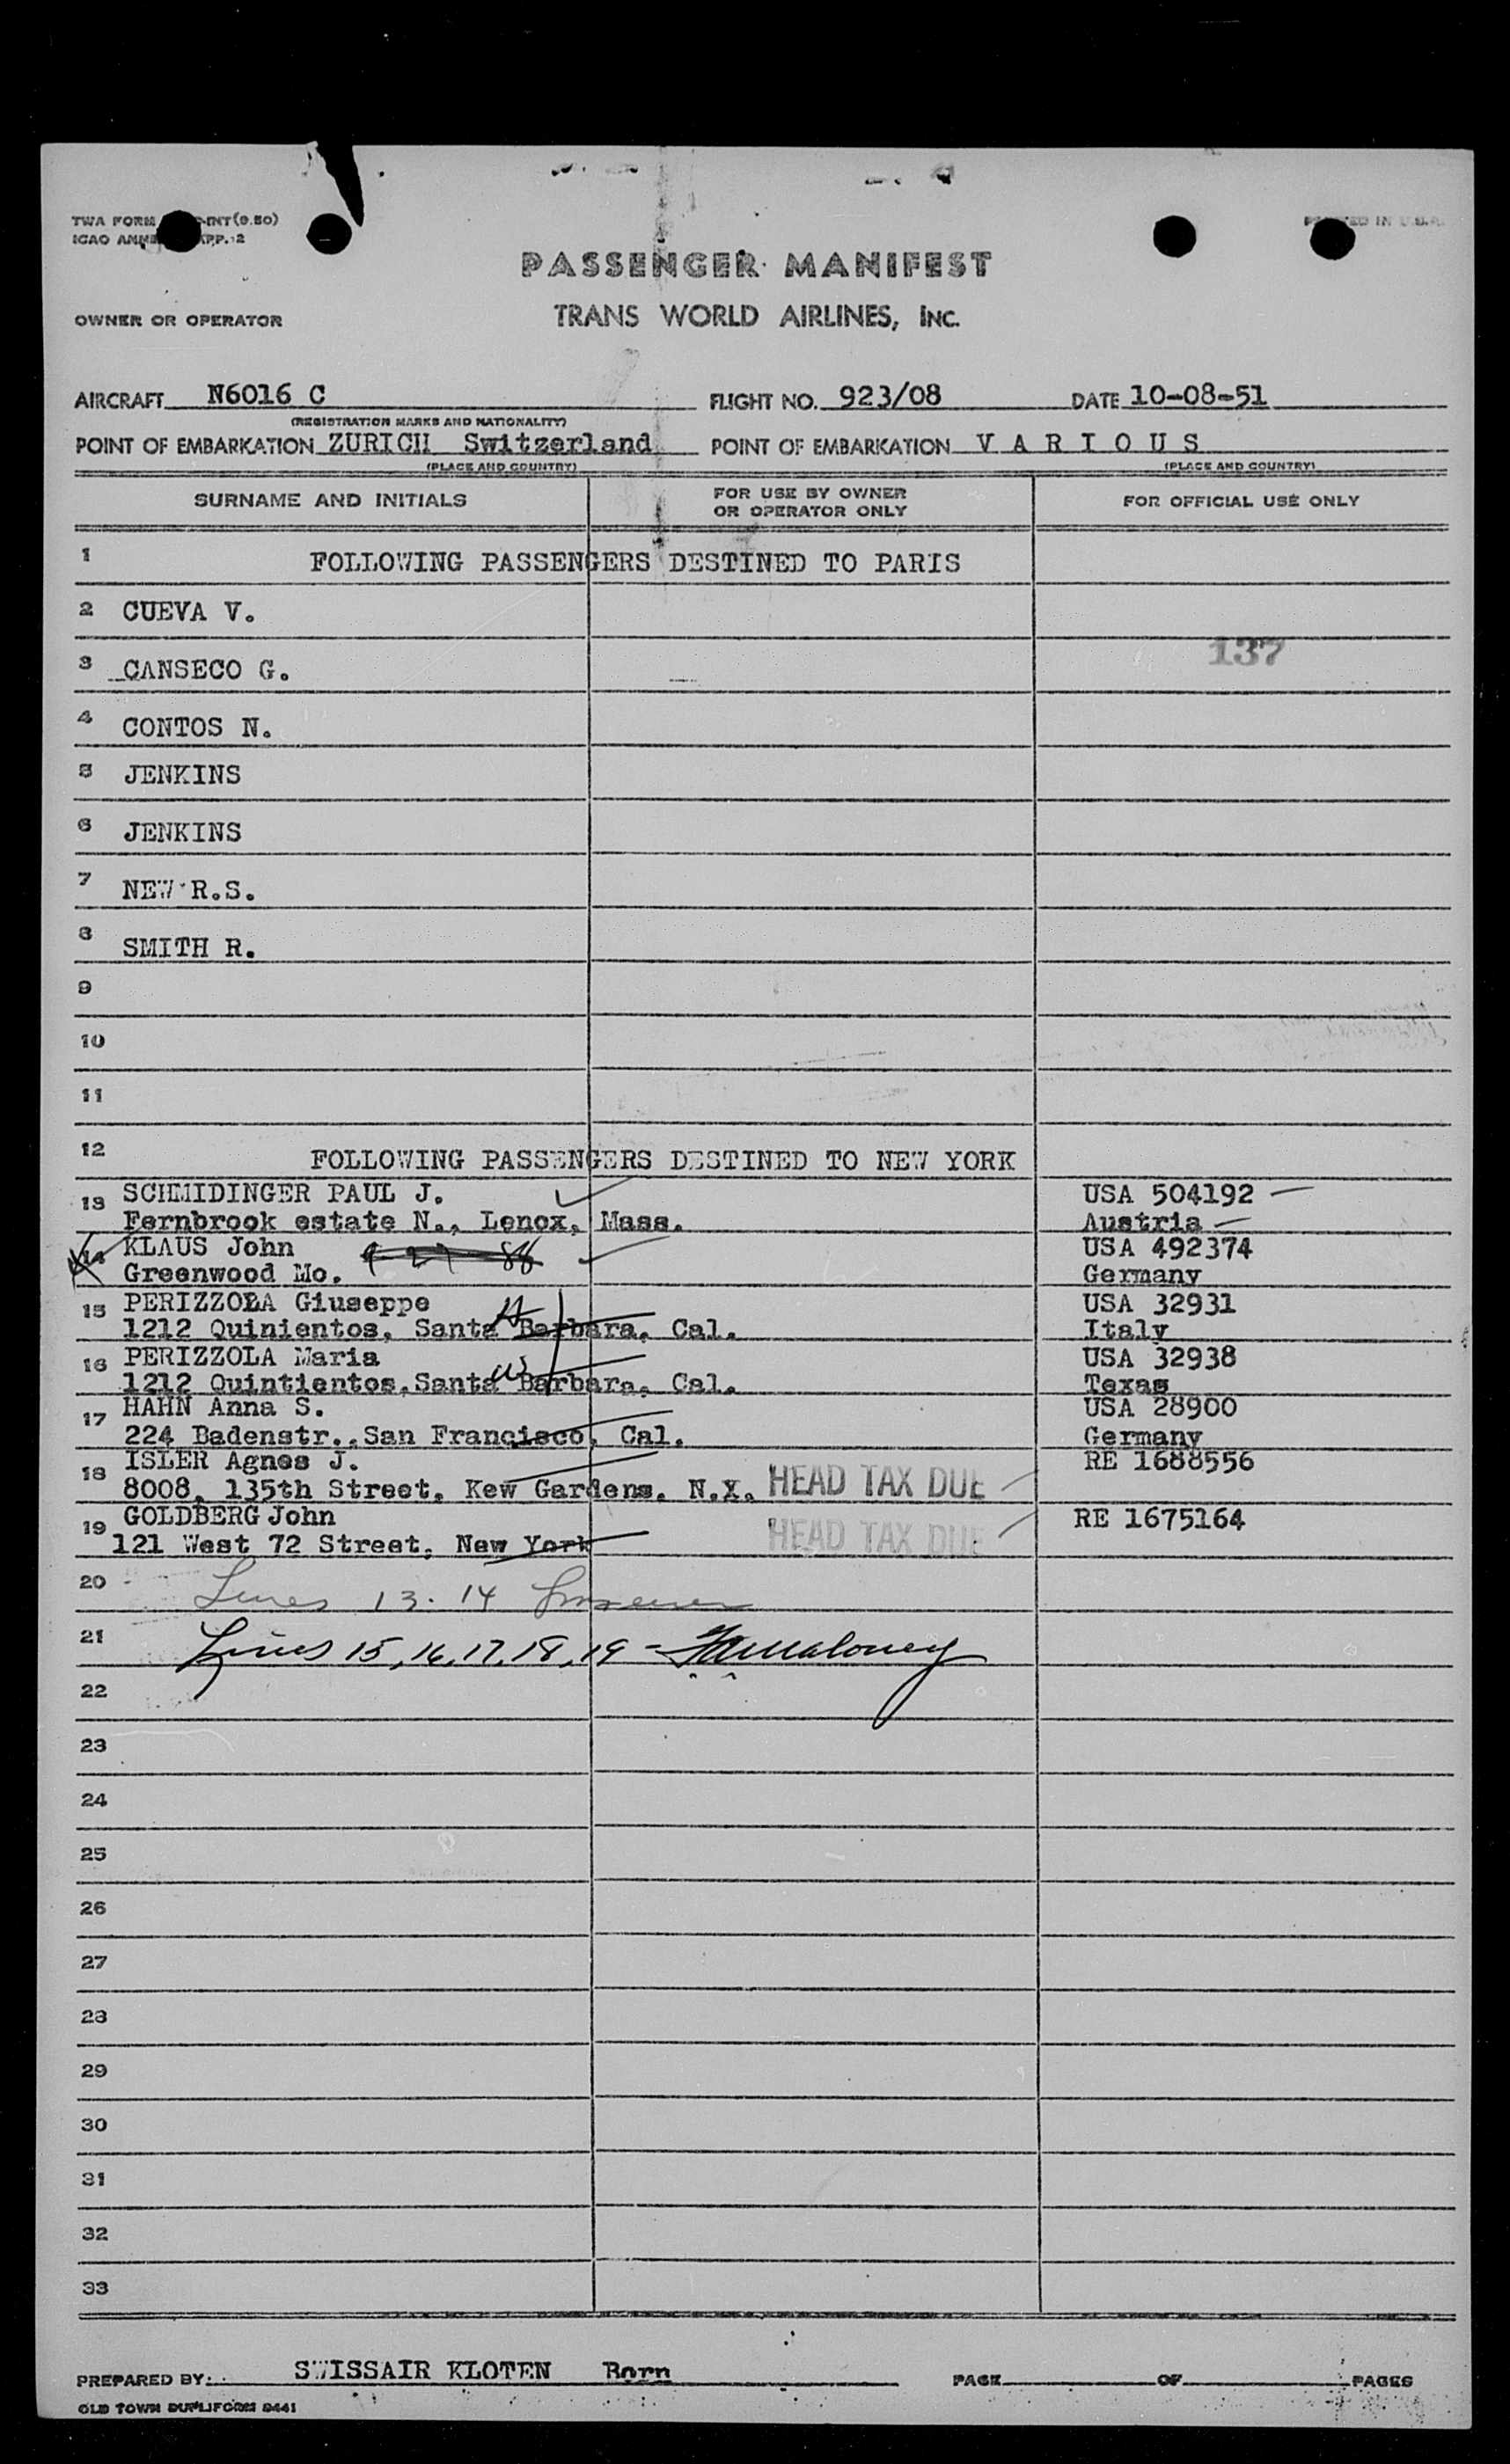 TWA FORM -INT(9.50)
ICAO ANNE APP. 2
PRINTED IN U.S.A.
PASSENGER MANIFEST
OWNER OR OPERATOR
TRANS WORLD AIRLINES, INC.
AIRCRAFT N6016 C FLIGHT NO. 923/08 DATE 10-08-51
(REGISTRATION MARKS AND NATIONALITY)
POINT OF EMBARKATION ZURICH Switzerland POINT OF EMBARKATION V A R I O U S
(PLACE AND COUNTRY) (PLACE AND COUNTRY)
SURNAME AND INITIALS FOR USE BY OWNER OR OPERATOR ONLY FOR OFFICIAL USE ONLY
1 FOLLOWING PASSENGERS DESTINED TO PARIS
2 CUEVA V.
3 CANSECO G. 137
4 CONTOS N.
5 JENKINS
6 JENKINS
7 NEW R.S.
8 SMITH R.
9
10
11
12 FOLLOWING PASSENGERS DESTINED TO NEW YORK
13 SCHMIDINGER PAUL J. USA 504192
Fernbrook estate N., Lenox, Mass. Austria
14 KLAUS John USA 492374
Greenwood Mo. Germany
15 PERIZZOLA Giuseppe USA 32931
1212 Quinientos, Santa Barbara, Cal. Italy
16 PERIZZOLA Maria USA 32938
1212 Quintientos, Santa Barbara, Cal. Texas
17 HAHN Anna S. USA 28900
224 Badenstr., San Francisco, Cal. Germany
18 ISLER Agnes J. RE 1688556
8008, 135th Street, Kew Gardens, N.X. HEAD TAX DUE
19 GOLDBERG John RE 1675164
121 West 72 Street, New York HEAD TAX DUE
20 Lines 13. 14
21 Lines 15, 16, 17, 18, 19 - Maloney
22
23
24
25
26
27
28
29
30
31
32
33
PREPARED BY: SWISSAIR KLOTEN Born PAGE OF PAGES
OLD TOWN DUPLIFORM 9441